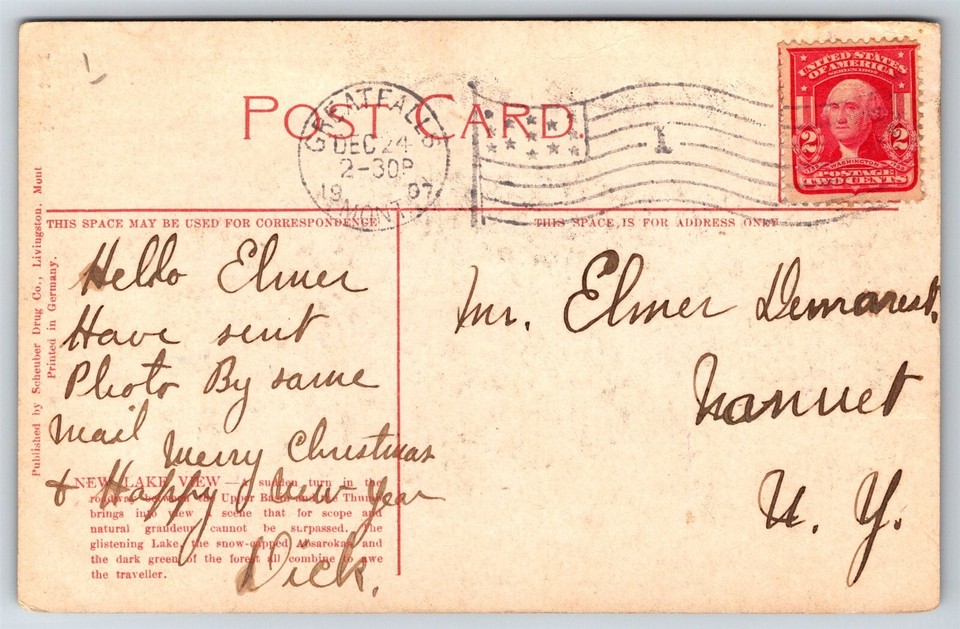 POST CARD.
GREAT FALLS
DEC 24
2-30P
19 07
MONT.
1
UNITED STATES
OF AMERICA
SERIES 1902
2 2
WASHINGTON
POSTAGE
TWO CENTS
THIS SPACE MAY BE USED FOR CORRESPONDENCE
THIS SPACE IS FOR ADDRESS ONLY
Published by Scheuber Drug Co., Livingston, Mont
Printed in Germany.
Hello Elmer
Have sent
Photo By same
mail
Merry Christmas
& Happy New Year
Dick.
NEW LAKE VIEW — A sudden turn in the
roadway between the Upper Basin and the Thumb
brings into view a scene that for scope and
natural grandeur cannot be surpassed. The
glistening Lake, the snow-capped Absarokas and
the dark green of the forest all combine to awe
the traveller.
Mr. Elmer Demarest.
Nanuet
N. Y.